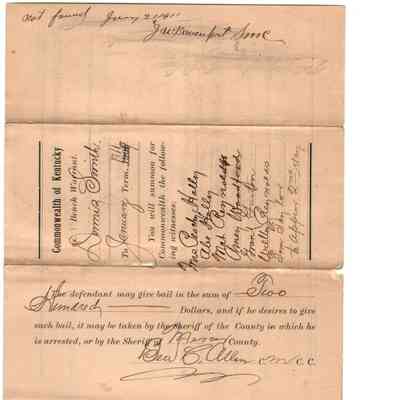 not found Jany 2 1911
Jas Davenport SMC
Commonwealth of Kentucky
To Bench Warrant.
Lonnie Smith.
To January Term, 1911
You will summon for
Commonwealth the follow-
ing witnesses:
Mrs Perry Kelley
Abe Kelley
Mat Reynolds
Amey Woodford
Frank
Willie Reynolds
to appear 2nd day
The defendant may give bail in the sum of Two
Hundred Dollars, and if he desires to give
such bail, it may be taken by the Sheriff of the County in which he
is arrested, or by the Sheriff of Mercer County.
Ben C. Allin C. M. C. C.